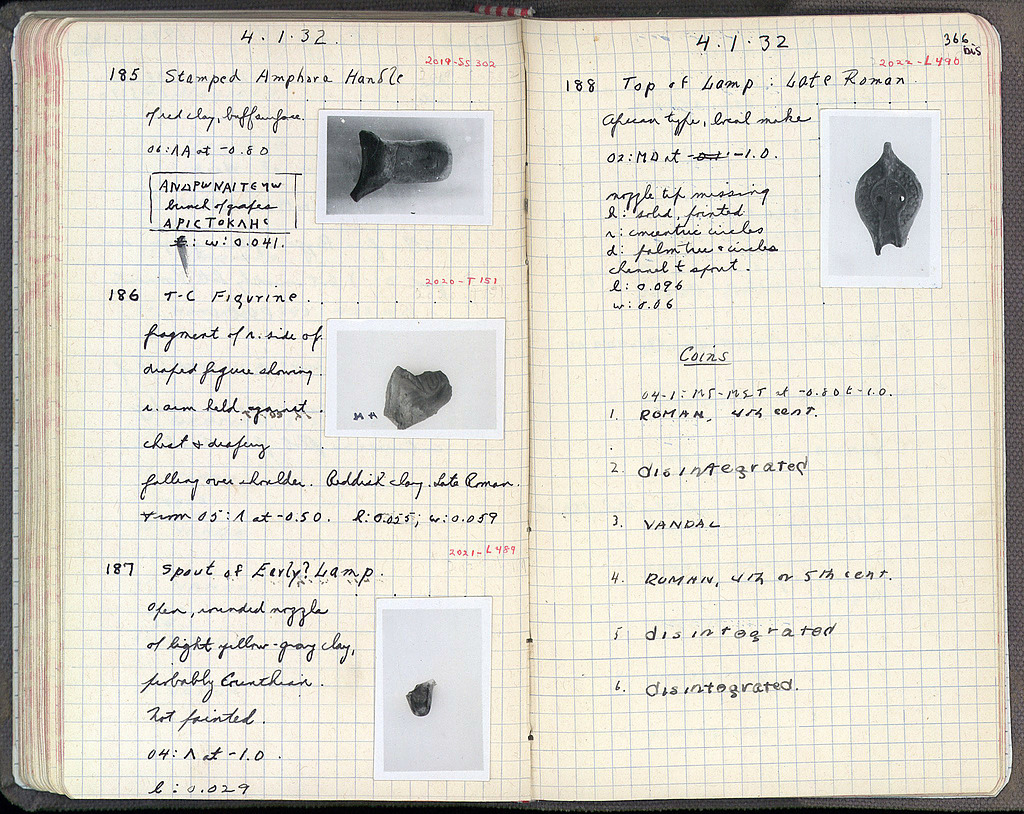 4.1.32.
2019-SS 302
185 Stamped Amphora Handle
of red clay, buff surface.
06:ΛΑ at -0.80
ΑΝΔΡωΝΑΙΤΕΠω
bunch of grapes
ΑΡΙCΤΟΚΛΗC
: w: 0.041.
2020-T 151
186 T-C Figurine.
fragment of r. side of
draped figure showing
r. arm held against
chest & drapery
falling over shoulder. Reddish clay. Late Roman.
From 05:Λ at -0.50. l: 0.055; w: 0.059
2021-L 489
187 Spout of Early? Lamp.
open, rounded nozzle
of light yellow-gray clay,
probably Corinthian.
Not painted.
04:Λ at -1.0.
l: 0.029
4.1.32
366
bis
2022-L490
188 Top of Lamp: Late Roman
African type, local make
02:ΜΔ at -1.0.
nozzle tip missing
h: solid, pointed
r: concentric circles
d: palm tree & circles
channel to spout.
l: 0.096
w: 0.06
Coins
04-1: ΜΣ-ΜΣΤ at -0.80 to -1.0.
1. ROMAN, 4th cent.
2. disintegrated
3. VANDAL
4. ROMAN, 4th or 5th cent.
5 disintegrated
6. disintegrated.